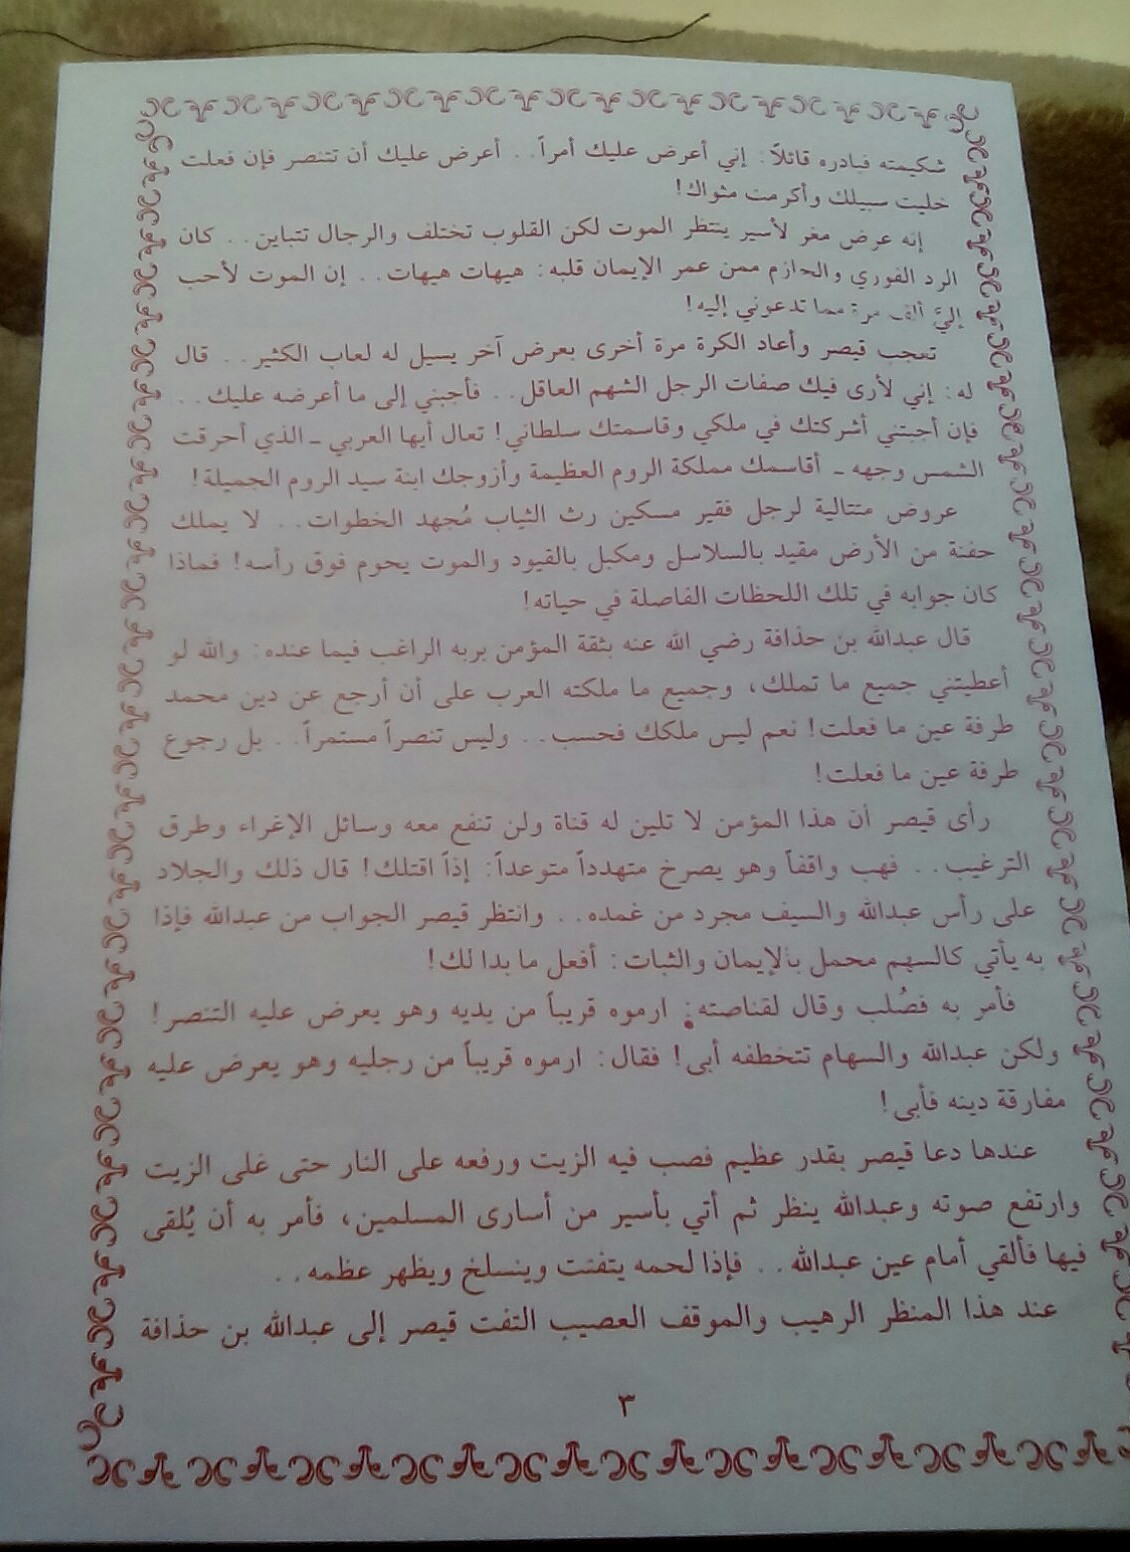 شكيمته فبادره قائلاً: إني أعرض عليك أمراً.. أعرض عليك أن تتنصر فإن فعلت
خليت سبيلك وأكرمت مثواك!
إنه عرض مغر لأسير ينتظر الموت لكن القلوب تختلف والرجال تتباين.. كان
الرد الفوري والحازم ممن عمر الإيمان قلبه: هيهات هيهات.. إن الموت لأحب
إليَّ ألف مرة مما تدعوني إليه!
تعجب قيصر وأعاد الكرة مرة أخرى بعرض آخر يسيل له لعاب الكثير.. قال
له: إني لأرى فيك صفات الرجل الشهم العاقل.. فأجبني إلى ما أعرضه عليك..
فإن أجبتني أشركتك في ملكي وقاسمتك سلطاني! تعال أيها العربي ـ الذي أحرقت
الشمس وجهه ـ أقاسمك مملكة الروم العظيمة وأزوجك ابنة سيد الروم الجميلة!
عروض متتالية لرجل فقير مسكين رث الثياب مُجهد الخطوات.. لا يملك
حفنة من الأرض مقيد بالسلاسل ومكبل بالقيود والموت يحوم فوق رأسه! فماذا
كان جوابه في تلك اللحظات الفاصلة في حياته!
قال عبدالله بن حذافة رضي الله عنه بثقة المؤمن بربه الراغب فيما عنده: والله لو
أعطيتني جميع ما تملك، وجميع ما ملكته العرب على أن أرجع عن دين محمد
طرفة عين ما فعلت! نعم ليس ملكك فحسب.. وليس تنصراً مستمراً.. بل رجوع
طرفة عين ما فعلت!
رأى قيصر أن هذا المؤمن لا تلين له قناة ولن تنفع معه وسائل الإغراء وطرق
الترغيب.. فهب واقفاً وهو يصرخ متهدداً متوعداً: إذاً اقتلك! قال ذلك والجلاد
على رأس عبدالله والسيف مجرد من غمده.. وانتظر قيصر الجواب من عبدالله فإذا
به يأتي كالسهم محمل بالإيمان والثبات: أفعل ما بدا لك!
فأمر به فصُلب وقال لقناصته: ارموه قريباً من يديه وهو يعرض عليه التنصر!
ولكن عبدالله والسهام تتخطفه أبى! فقال: ارموه قريباً من رجليه وهو يعرض عليه
مفارقة دينه فأبى!
عندها دعا قيصر بقدر عظيم فصب فيه الزيت ورفعه على النار حتى غلى الزيت
وارتفع صوته وعبدالله ينظر ثم أتي بأسير من أسارى المسلمين، فأمر به أن يُلقى
فيها فألقي أمام عين عبدالله.. فإذا لحمه يتفتت وينسلخ ويظهر عظمه..
عند هذا المنظر الرهيب والموقف العصيب التفت قيصر إلى عبدالله بن حذافة
٣